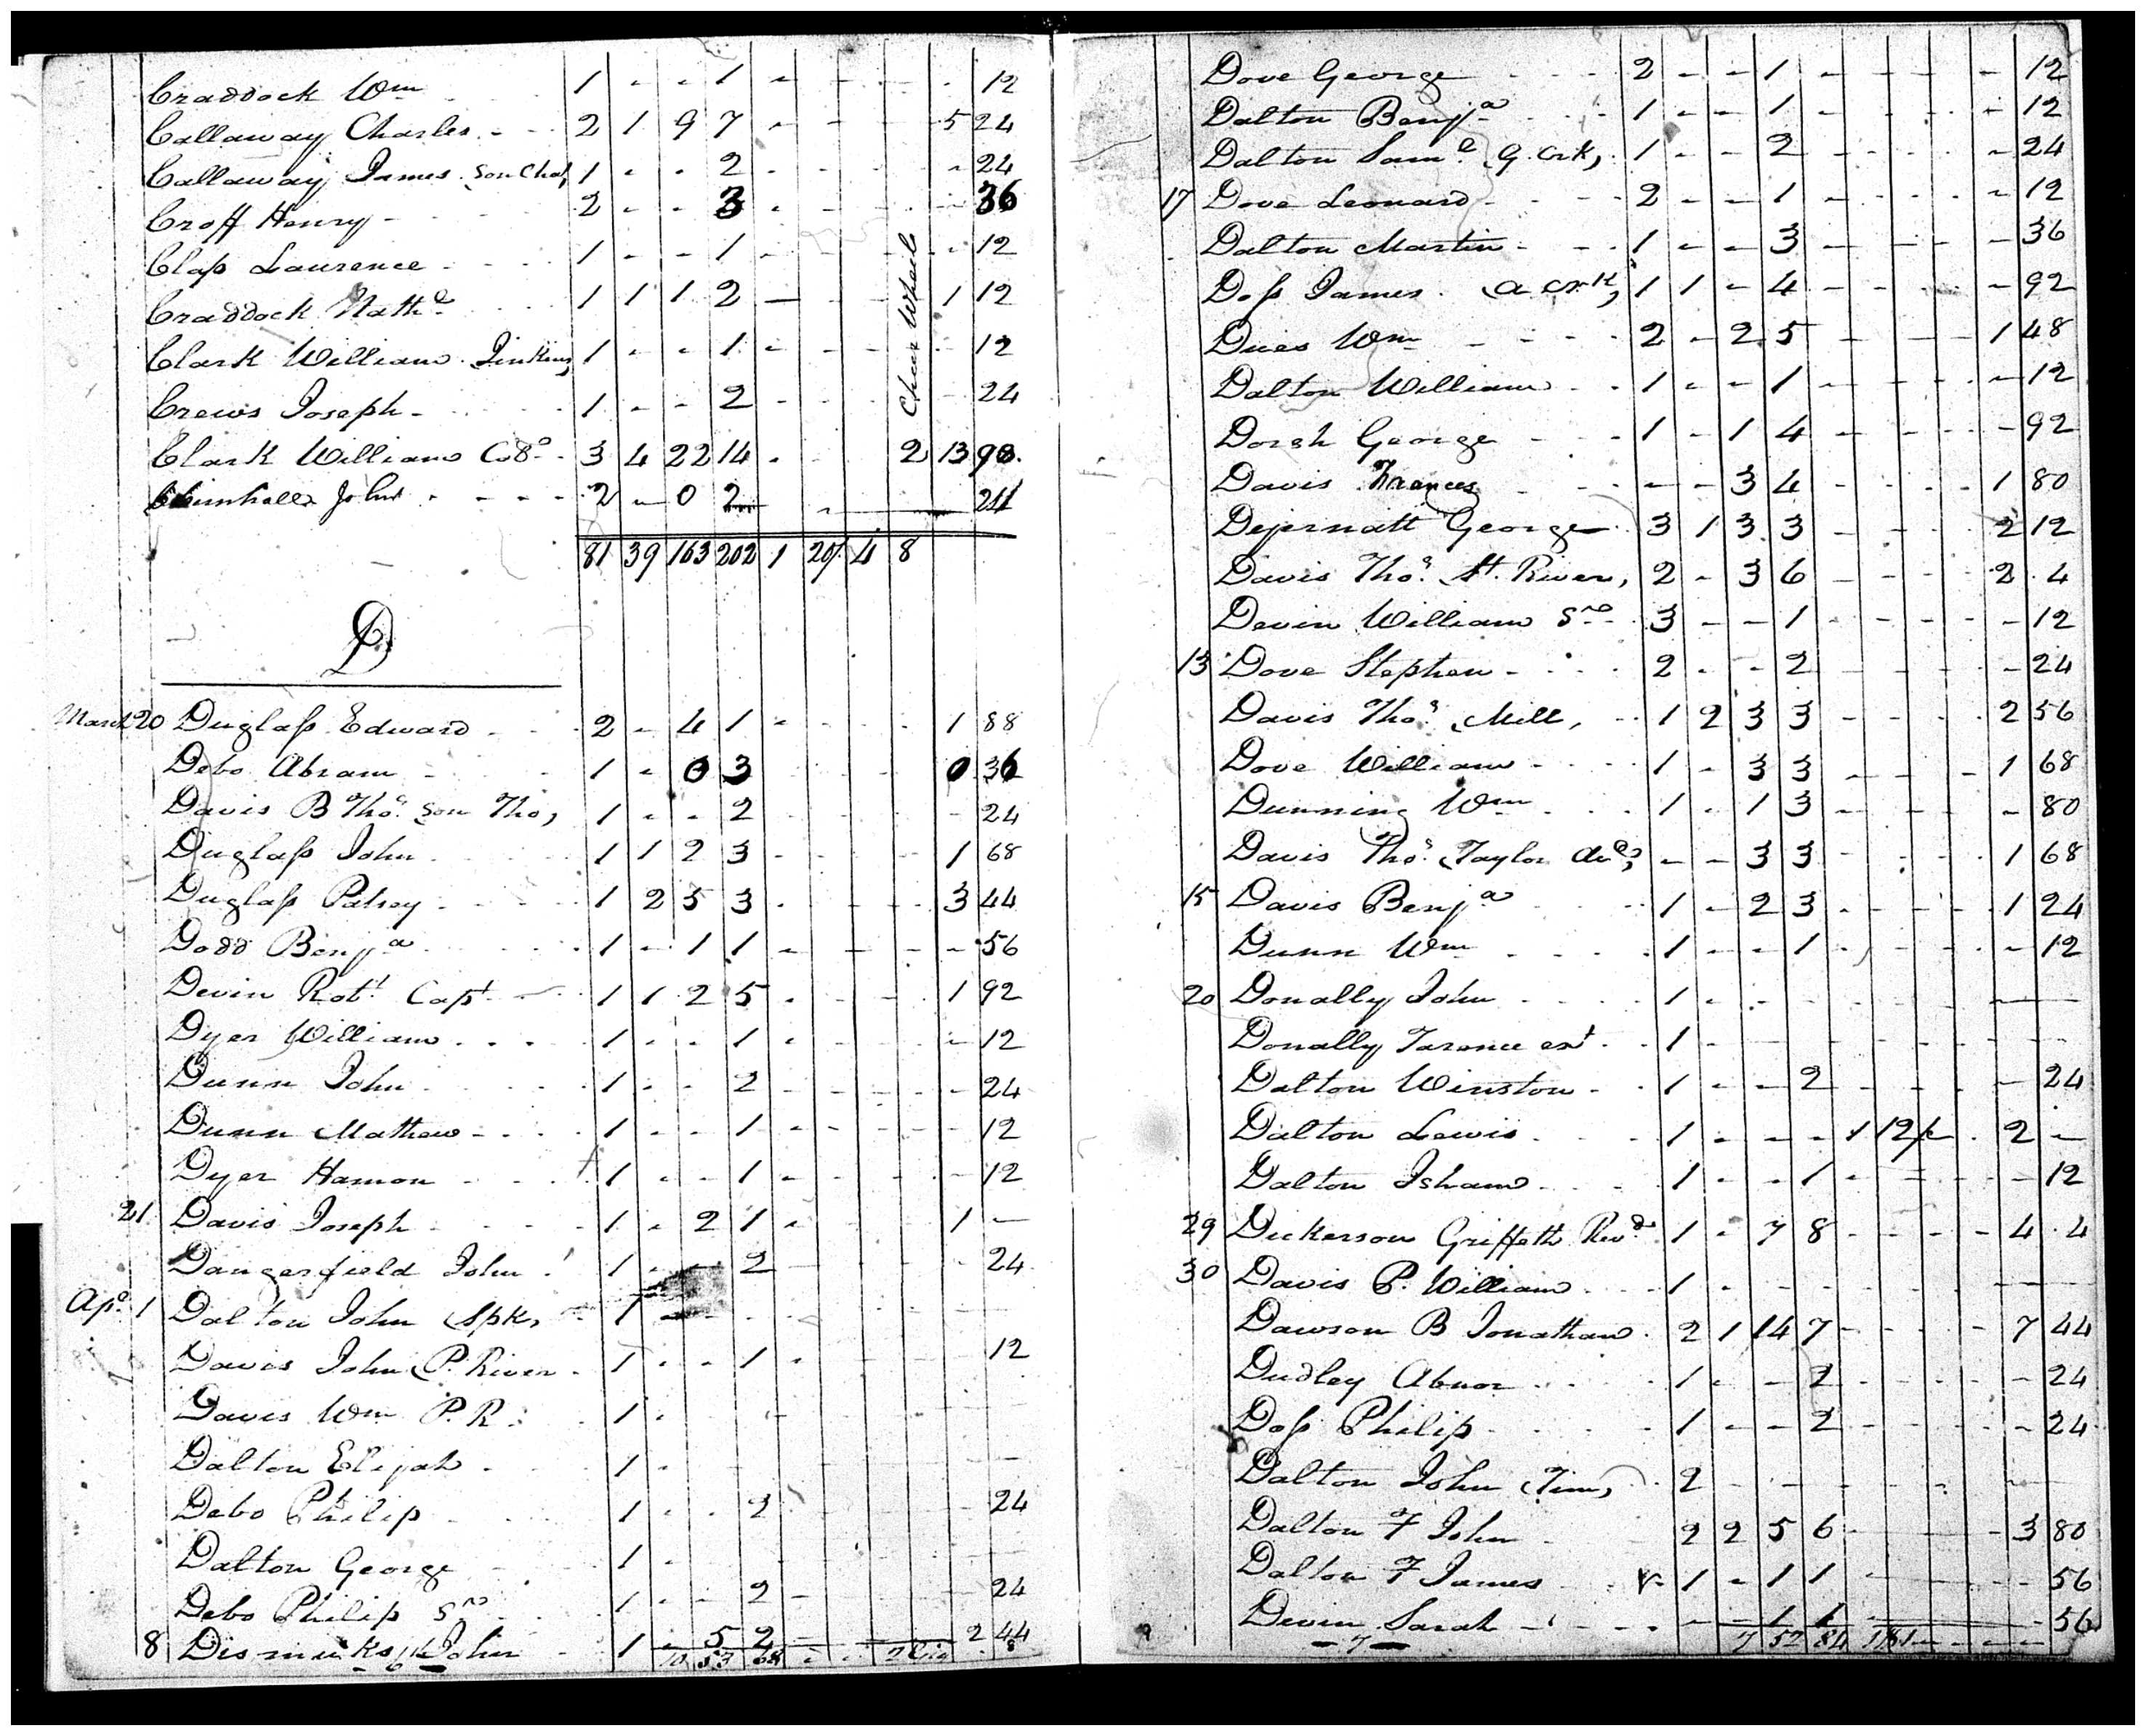 Craddock Wm 1 - - 1 - - - - - 12
Callaway Charles - 2 1 9 7 - - - 5 24
Callaway James Son Chas, 1 - - 2 - - - - - 24
Croff Henry - 2 - - 3 - - - - - 36
Claſs Laurence - 1 - - 1 - - - - 12
Craddock Nathl 1 1 1 2 - - - 1 12
Clark William Jinkins, 1 - - 1 - - - - 12
Crews Joseph - 1 - - 2 - - - - 24
Chair Wheels
Clark William Colo - 3 4 22 14 - 2 13 98
John - - - 2 - 0 2 - 24
81 39 163 202 1 20/ 4 8
D
March 20 Duglaſs Edward - 2 - 4 1 - - - - 1 88
Debo Abram - 1 - 0 3 - - - - 0 36
Davis B Thos. Son Tho, 1 - - 2 - - - - - 24
Duglaſs John 1 1 2 3 - - - - 1 68
Duglaſs Patsey - 1 2 5 3 - - - - 3 44
Dodd Benja 1 - 1 1 - - - - - 56
Devin Robt Capt - 1 1 2 5 - - - - 1 92
Dyer William - - - 1 - - 1 - - - - - 12
Dunn John 1 - - 2 - - - - - 24
Dunn Mathew - - - 1 - - 1 - - - - - 12
Dyer Hamon - - - 1 - - 1 - - - - - 12
21 Davis Joseph - 1 - 2 1 - 1 -
Dangerfield John 1 - - 2 - - - - 24
Apl 1 Dalton John Spk, 1 - - - -
Davis John P. River - 1 - - 1 - 12
Davis Wm P. R. 1 -
Dalton Elijah - 1 -
Debo Philip 1 - - 2 24
Dalton George 1 -
Debo Philip Snr 1 - - 2 - 24
8 Dismukes John 1 - 5 2 - 2 44
Dove George - - - 2 - - 1 - - - - - 12
Dalton Benja 1 - - 1 - - - - - 12
Dalton Saml G. Crk, 1 - - 2 - - - - - 24
17 Dove Leonard - - - 2 - - 1 - - - - - 12
Dalton Martin - - - 1 - - 3 - - - - - 36
Doſs James. a crk, 1 1 - 4 - - - - - 92
Dues Wm - - - - 2 - 2 5 - - - 1 48
Dalton William - - 1 - - 1 - - - - - 12
Dorsh George - - 1 - 1 4 - - - - - 92
Davis Frances - - - 3 4 - - - - 1 80
Dejernatt George - 3 1 3 3 - - - 2 12
Davis Thos. St. River, 2 - 3 6 - - - - 2 4
Devin William Snr 3 - - 1 - - - - - 12
13 Dove Stephen - - - - 2 - - 2 - - - - - 24
Davis Thos. Mill, - - 1 2 3 3 - - - - 2 56
Dove William - - - 1 - 3 3 - - - 1 68
Dunning Wm - - - 1 - 1 3 - 80
Davis Thos. Taylor - - 3 3 - - - 1 68
15 Davis Benja - 1 - 2 3 - - - - 1 24
Dunn Wm - - - 1 - - 1 - - - - - 12
20 Donally John - - - 1 - - - - - - -
Donally Tarence - - 1 - - - - - -
Dalton Winston - - 1 - - 2 - - - - - 24
Dalton Lewis - - 1 - - - 1 12/ - 2 -
Dalton Isham - - - 1 - - 1 - - - - - 12
29 Dickerson Griffeth Revd 1 - 7 8 - - - - 4 4
30 Davis P. William - - 1 - - - - - -
Dawson B Jonathan - 2 1 14 7 - - - - 7 44
Dudley Abner - - - 1 - - 2 - - - - - 24
Doſs Philip - - - - 1 - - 2 - - - - - 24
Dalton John (Tim) 2 - - - - - -
Dalton F John 2 2 5 6 - - - 3 80
Dalton F James 1 - 1 1 - - - 56
Devin Sarah - - - - - 1 1 - - 56